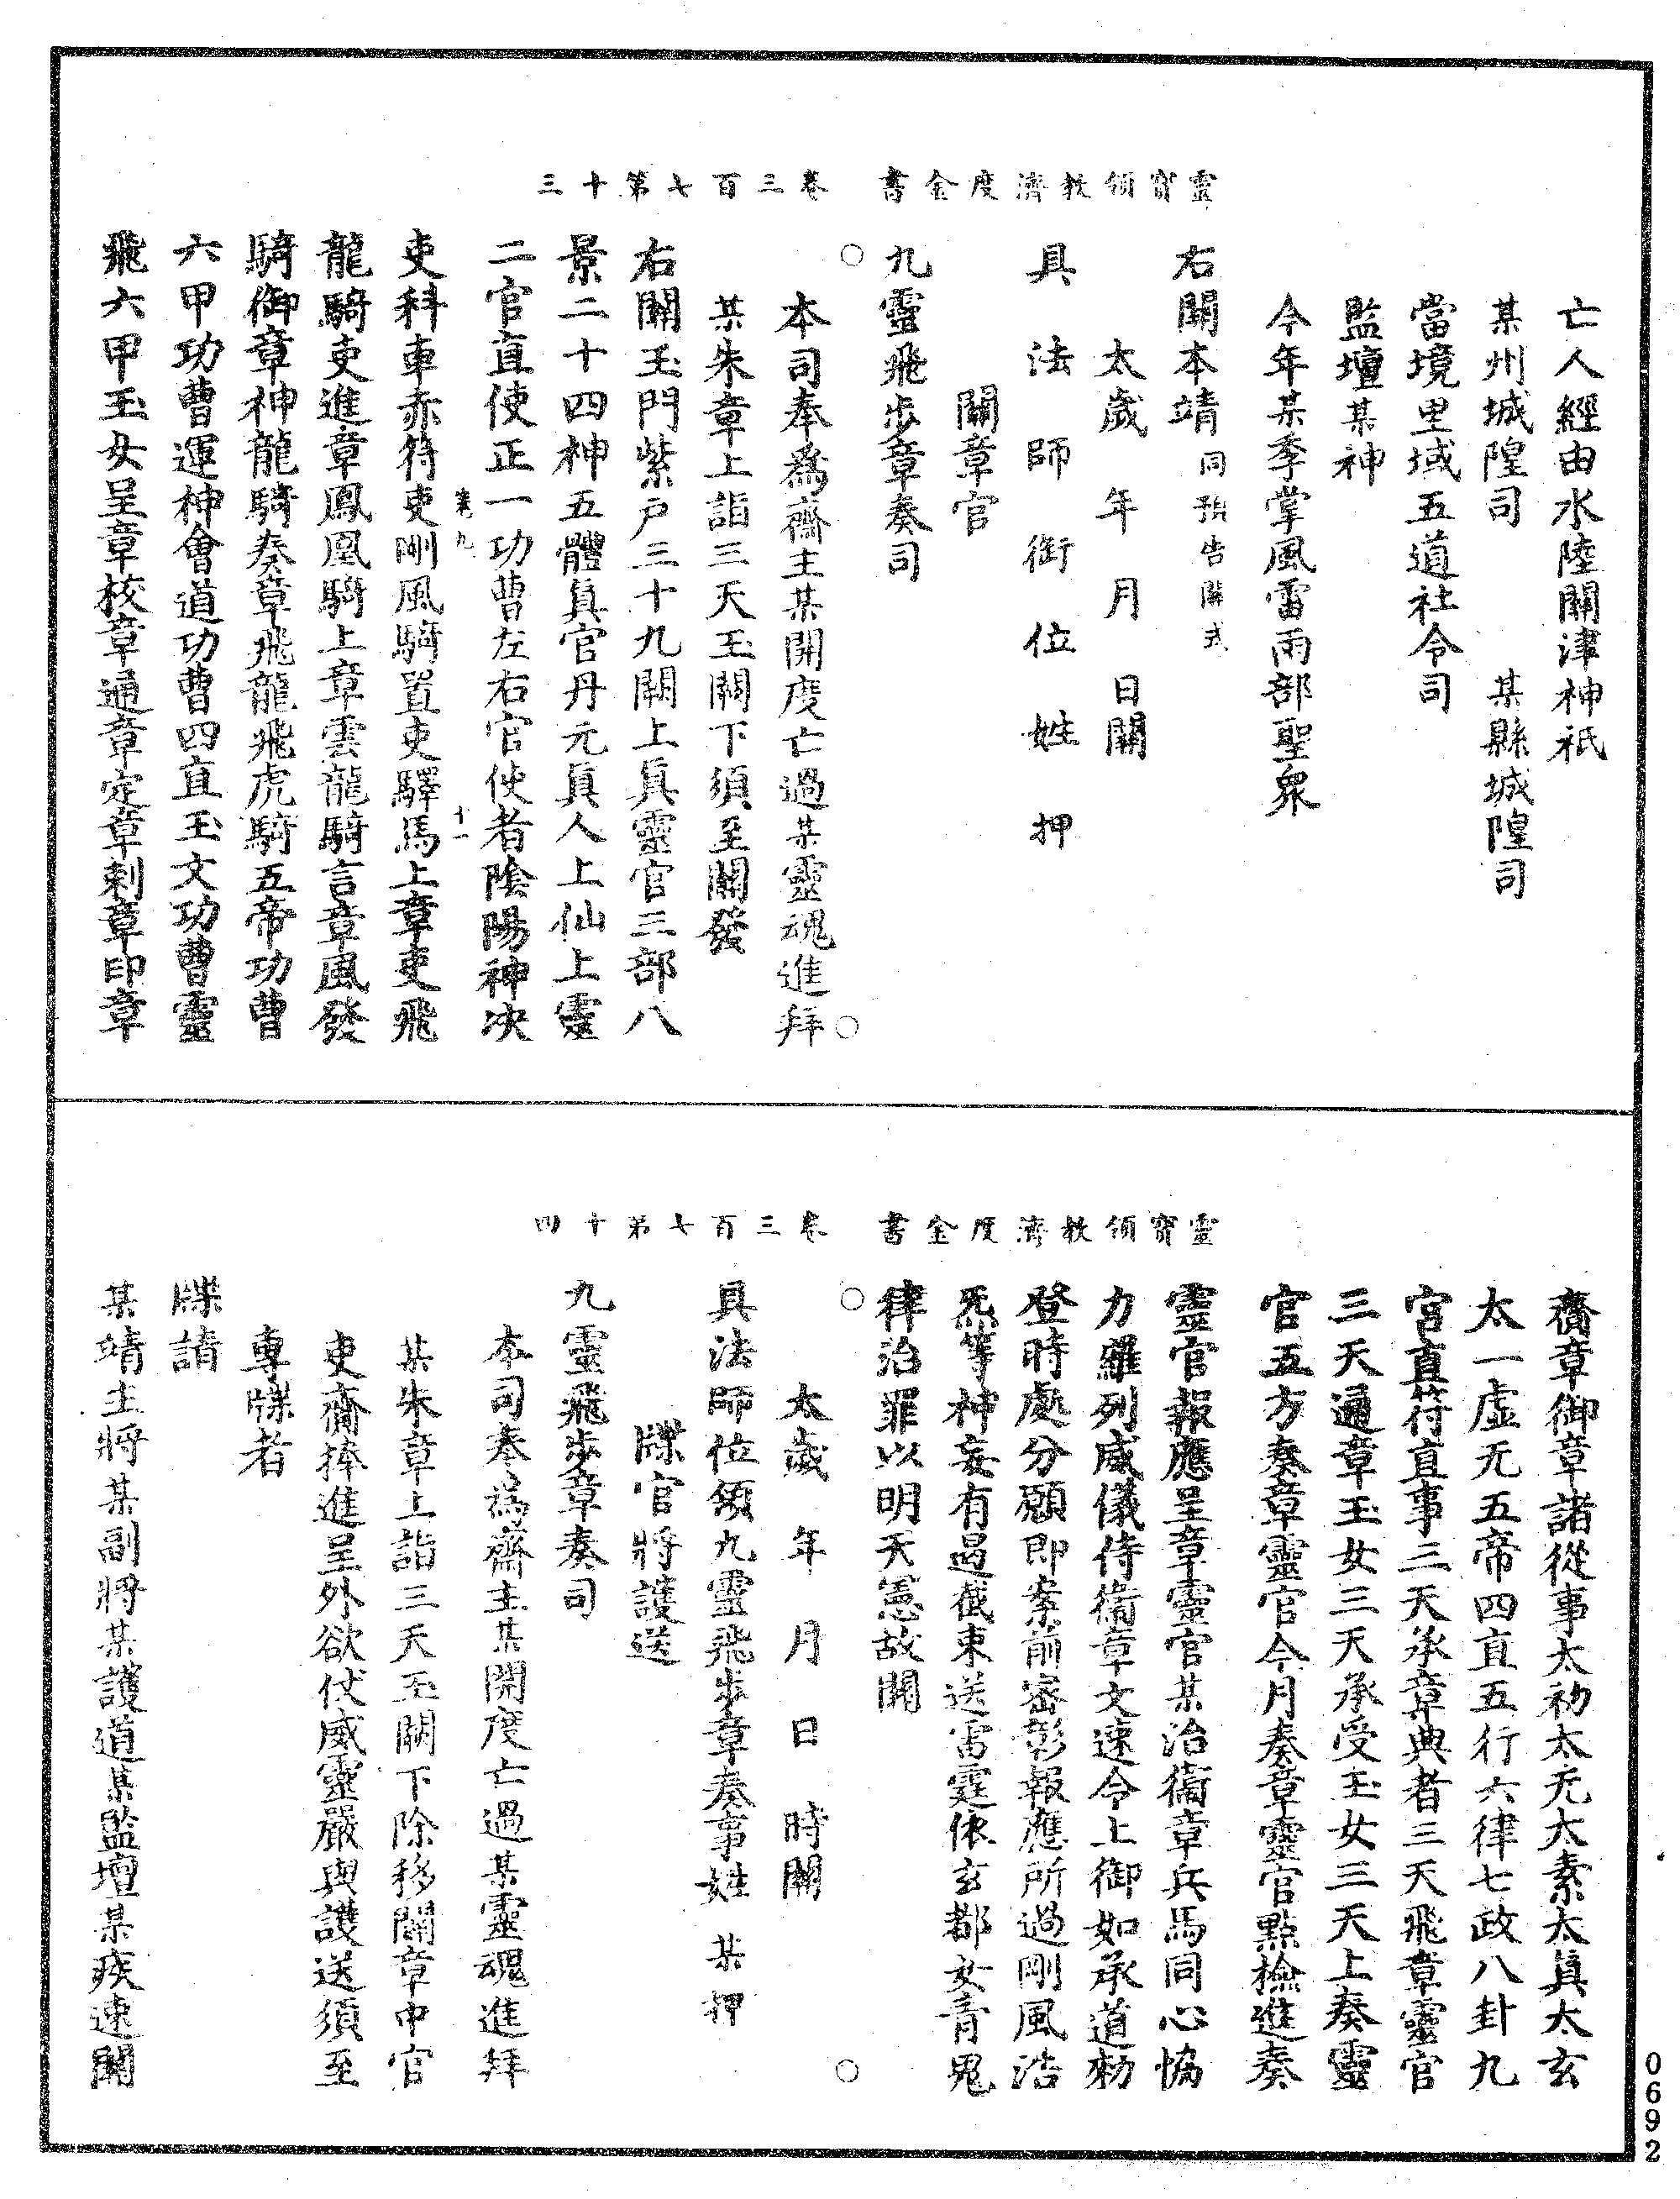 靈寶領教濟度金書　卷三百七第十三
亡人經由水陸關津神祇
某州城隍司　　某縣城隍司
當境里域五道社令司
監壇某神
今年某季掌風雷雨部聖衆
右關本靖同預告關式
太歲　年　月　日關
具法師銜位姓押
關章官
九靈飛步章奏司
本司奉爲齋主某開度亡過某靈魂進拜
某朱章上詣三天玉闕下須至關發
右關玉門紫戶三十九闕上眞靈官三部八
景二十四神五體眞官丹元眞人上仙上靈
二官直使正一功曹左右官使者陰陽神決
吏科車赤符吏剛風騎置吏驛馬上章吏飛
龍騎吏進章鳳凰騎上章雲龍騎言章風發
騎御章神龍騎奏章飛龍飛虎騎五帝功曹
六甲功曹運神會道功曹四直玉文功曹靈
飛六甲玉女呈章校章通章定章刺章印章
靈寶領教濟度金書　卷三百七第十四
齋章御章諸從事太初太无太素太眞太玄
太一虛无五帝四直五行六律七政八卦九
宮直符直事三天承章典者三天飛章靈官
三天通章玉女三天承受玉女三天上奏靈
官五方奏章靈官今月奏章靈官點檢進奏
靈官報應呈章靈官某治衞章兵馬同心恊
力羅列威儀侍衞章文速令上御如承道勑
登時處分願即案前密彰報應所過剛風浩
炁等神妄有遏截束送雷霆依玄都女青鬼
律治罪以明天憲故關
太歲　年　月　日　時關
具法師位領九靈飛步章奏事姓　某押
牒官將護送
九靈飛步章奏司
本司奉爲齋主某開度亡過某靈魂進拜
某朱章上詣三天玉闕下除移關章中官
吏齋捧進呈外欲仗威靈嚴與護送須至
專牒者
牒請
某靖主將某副將某護道某監壇某疾速關
0692